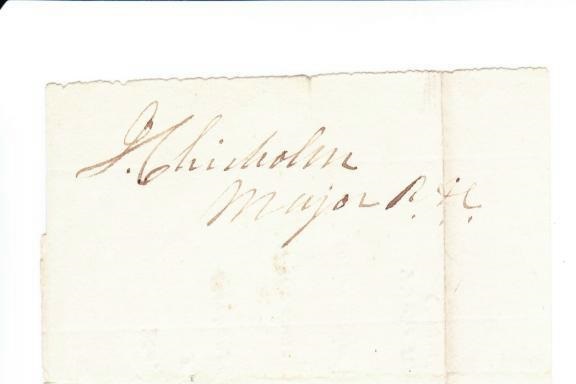 J. Chisholm
Major R. A.